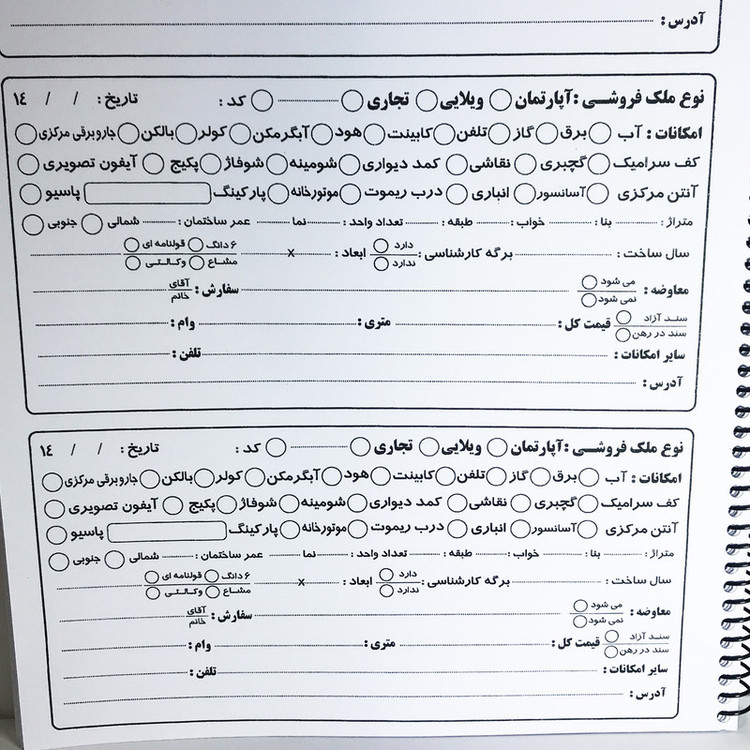 آدرس :
نوع ملک فروشی : آپارتمان ویلایی تجاری کد : تاریخ : / / ۱٤
امکانات : آب برق گاز تلفن کابینت هود آبگرمکن کولر بالکن جاروبرقی مرکزی
کف سرامیک گچبری نقاشی کمد دیواری شومینه شوفاژ پکیج آیفون تصویری
آنتن مرکزی آسانسور انباری درب ریموت موتورخانه پارکینگ پاسیو
متراژ : بنا : خواب : طبقه : تعداد واحد : نما عمر ساختمان : شمالی جنوبی
سال ساخت : برگه کارشناسی : دارد ندارد ابعاد : x ۶ دانگ قولنامه ای مشاع وکالتی
معاوضه : می شود نمی شود سفارش : آقای خانم
سند آزاد سند در رهن قیمت کل : متری : وام :
سایر امکانات : تلفن :
آدرس :
نوع ملک فروشی : آپارتمان ویلایی تجاری کد : تاریخ : / / ۱٤
امکانات : آب برق گاز تلفن کابینت هود آبگرمکن کولر بالکن جاروبرقی مرکزی
کف سرامیک گچبری نقاشی کمد دیواری شومینه شوفاژ پکیج آیفون تصویری
آنتن مرکزی آسانسور انباری درب ریموت موتورخانه پارکینگ پاسیو
متراژ : بنا : خواب : طبقه : تعداد واحد : نما عمر ساختمان : شمالی جنوبی
سال ساخت : برگه کارشناسی : دارد ندارد ابعاد : x ۶ دانگ قولنامه ای مشاع وکالتی
معاوضه : می شود نمی شود سفارش : آقای خانم
سند آزاد سند در رهن قیمت کل : متری : وام :
سایر امکانات : تلفن :
آدرس :